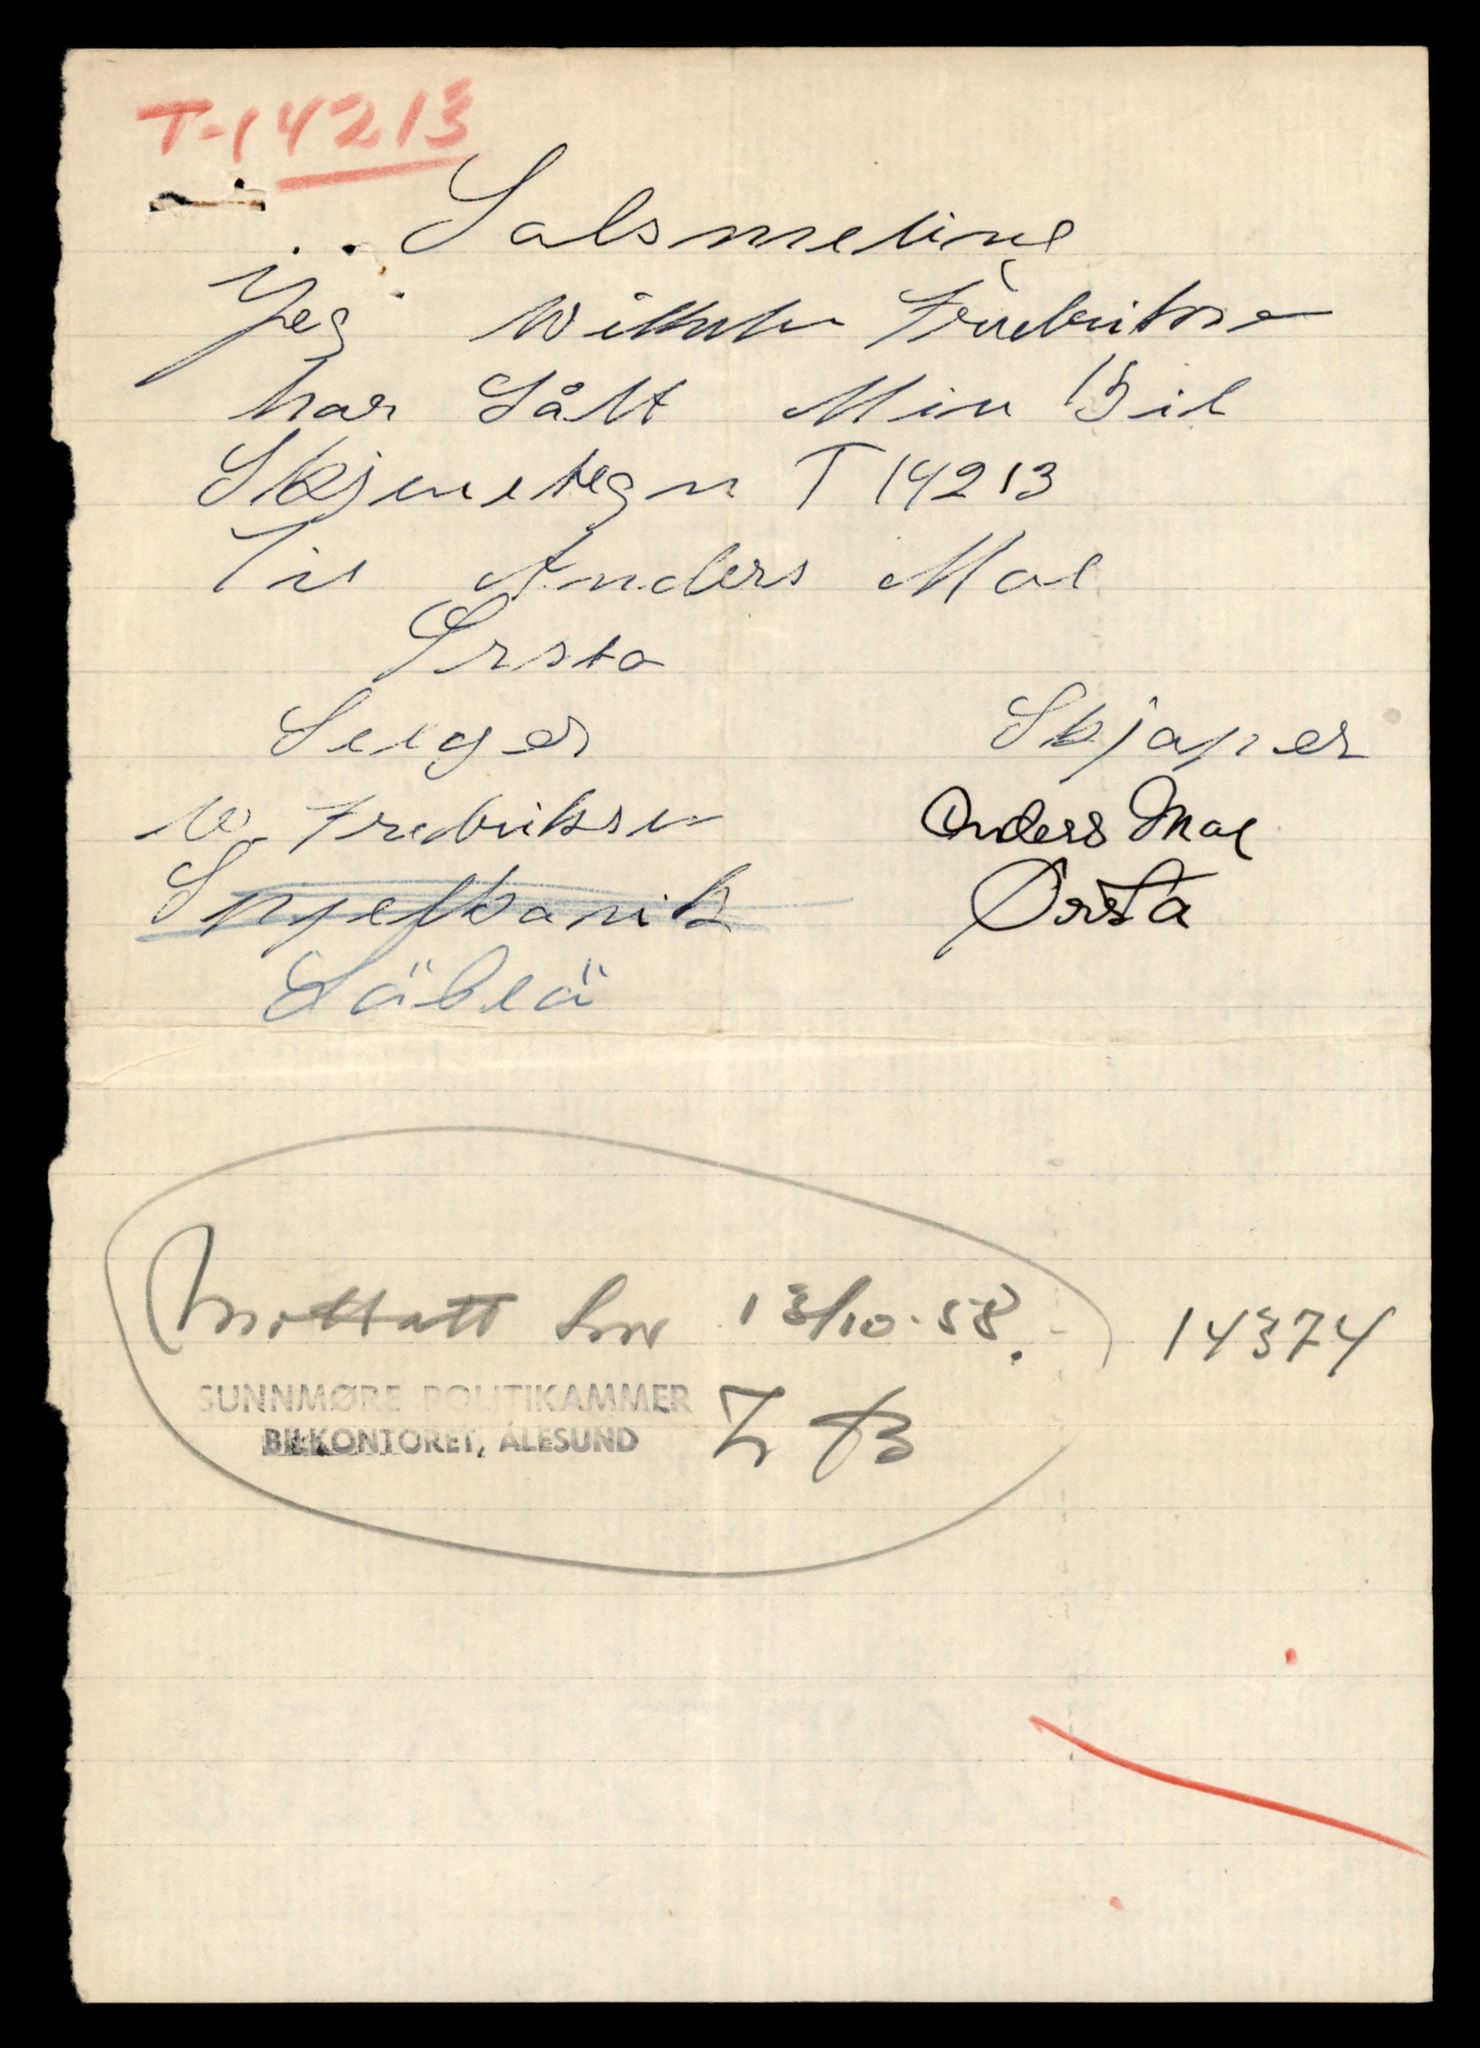 T-14213
Salsmeling
Jeg Wilhelm Fredriksen
har Sålt Min Bil
Skjenetegn T 14213
Til Anders Mal
Ørsta
Selger Skjøper
W. Fredriksen Anders Mal
Ørsta
Mottatt her 13/10-58. 14374
SUNNMØRE POLITIKAMMER
BILKONTORET, ÅLESUND